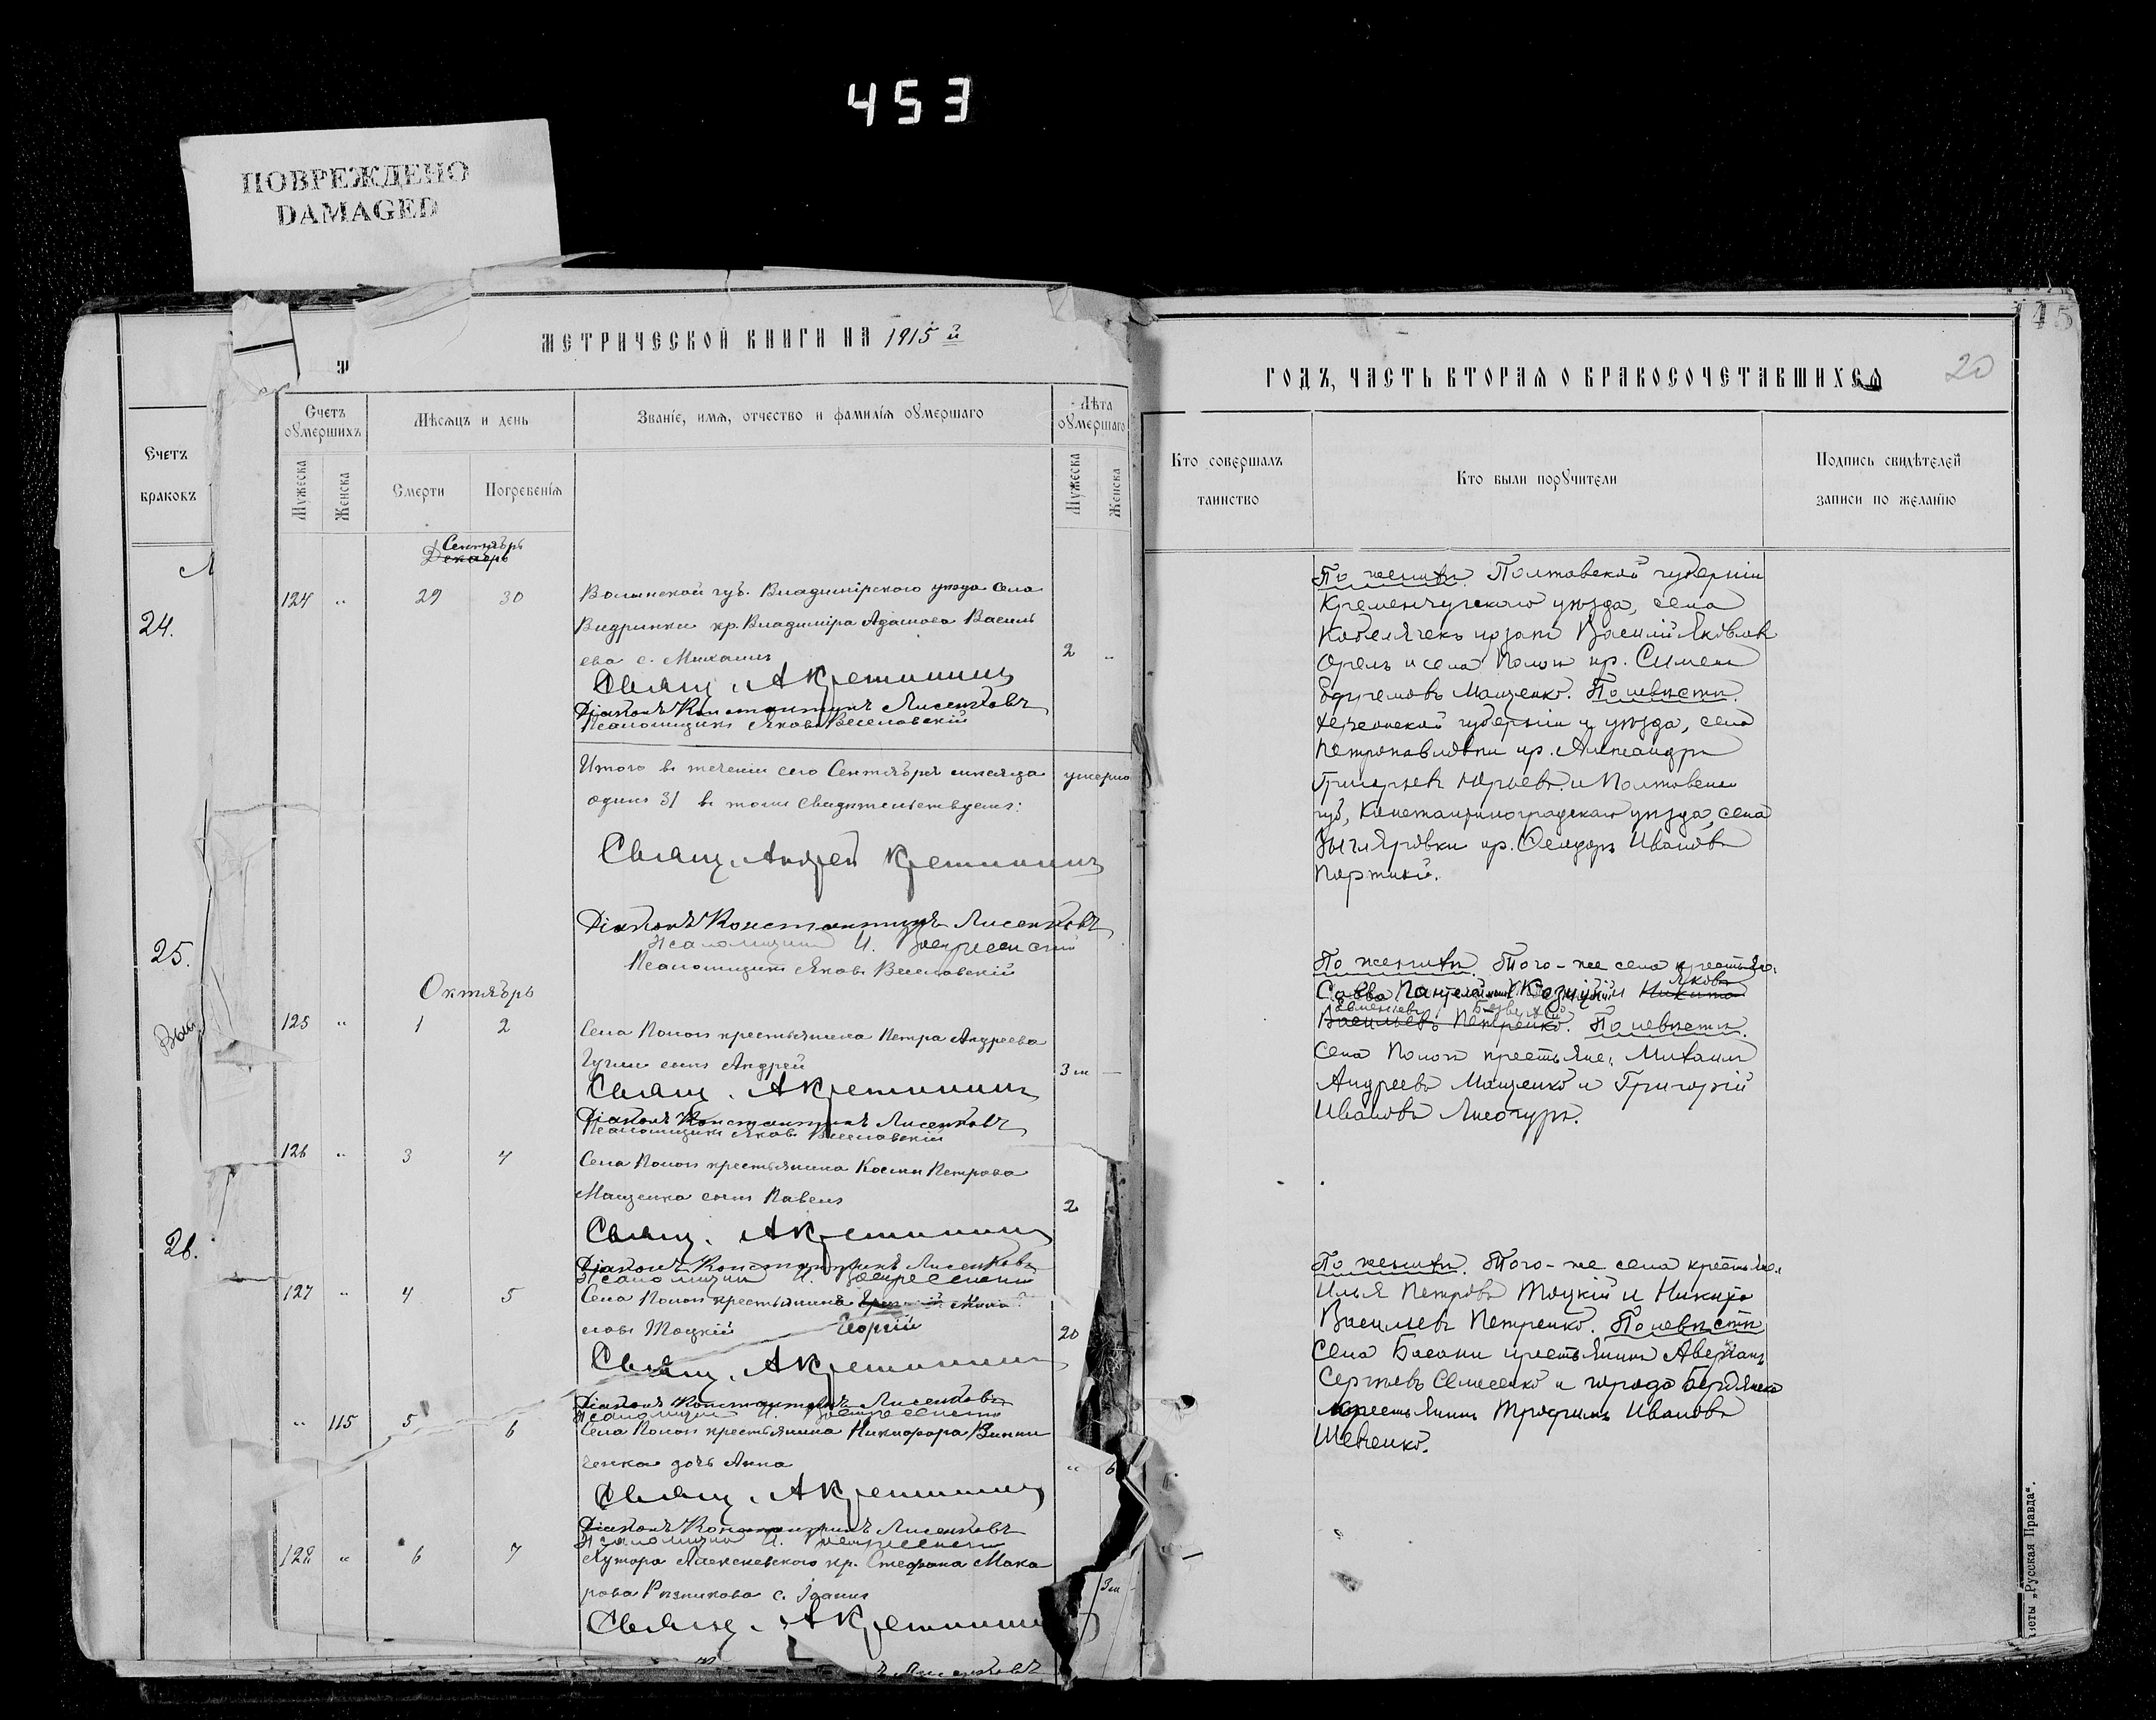 453
ПОВРЕЖДЕНО
DAMAGED
МЕТРИЧЕСКОЙ КНИГИ НА 1915 й
Счетъ
браковъ
24.
25.
26.
Счетъ умершихъ
Мужеска
Женска
Мѣсяцъ и день
Смерти
Погребенія
Званіе, имя, отчество и фамилія умершаго
Лѣта умершаго
Мужеска
Женска
Сентябрь
Декабрь
124 " 29 30 Волынской губ. Владимірского уезда села
Видринки кр. Владиміра Адамова Василь
ева с. Михаилъ 2 "
Свящ. А Крешишинъ
Діаконъ Константинъ Лисенковъ
Псаломщикъ Яковъ Веселовскій
Итого въ теченіи сего Сентября месяца умерло
одинъ 31 въ томъ свидѣтельствуемъ:
Свящ. Андрей Крешишинъ
Діаконъ Константинъ Лисенковъ
Псаломщикъ И. Воскресенскій
Псаломщикъ Яковъ Веселовскій
Октябрь
125 " 1 2 Села Пологъ крестьянина Петра Андреева
сынъ Андрей 3 м —
Свящ. А Крешишинъ
Діаконъ Константинъ Лисенковъ
Псаломщикъ Яковъ Веселовскій
126 " 3 4 Села Пологъ крестьянина Космы Петрова
Мащенка сынъ Павелъ 2
Свящ. А Крешишинъ
Діаконъ Константинъ Лисенковъ
Псаломщикъ И. Воскресенскій
127 " 4 5 Села Пологъ крестьянина
Тоцкій Георгій 20
Свящ. А Крешишинъ
Діаконъ Константинъ Лисенковъ
Псаломщикъ И. Воскресенскій
" 115 5 6 Села Пологъ крестьянина Никифора Винни
ченка дочь Анна " 6
Свящ. А Крешишинъ
Діаконъ Константинъ Лисенковъ
Псаломщикъ И. Воскресенскій
128 " 6 7 Хутора Алексеевского кр. Стефана Мака
рова Рязникова с. Іоаннъ 3 м
Свящ. А Крешишинъ
Лисенковъ
ГОДЪ, ЧАСТЬ ВТОРАЯ О БРАКОСОЧЕТАВШИХСЯ
20
45
Кто совершалъ
таинство
Кто были поручители
Подпись свидѣтелей
записи по желанію
По женихѣ. Полтавской губерніи
Кременчугского уѣзда, села
Кобелячекъ козакъ Василій Яковлевъ
Орелъ и села Пологъ кр. Симеонъ
Ефремовъ Мащенко. По невѣстѣ.
Херсонской губерніи и уѣзда, села
Петропавловки кр. Александръ
Григорьевъ Юрьевъ и Полтавской
губ, Константиноградскаго уѣзда, села
кр. Ѳеодоръ Ивановъ
По женихѣ. Того-же села крестьяне:
Яковъ
Савва Пантелеймоновъ Козицкій и Никита
Васильевъ Петренко. По невѣстѣ.
Села Пологъ крестьяне: Михаилъ
Андреевъ Мащенко и Григорій
Ивановъ Лисогуръ.
По женихѣ. Того-же села крестьяне:
Илья Петровъ Тоцкій и Никита
Васильевъ Петренко. По невѣстѣ
Села Басани крестьянинъ Аверкій
Сергѣевъ Семесенко и города Бердянска
крестьянинъ Трофимъ Ивановъ
Шевченко.
газеты „Русская Правда".